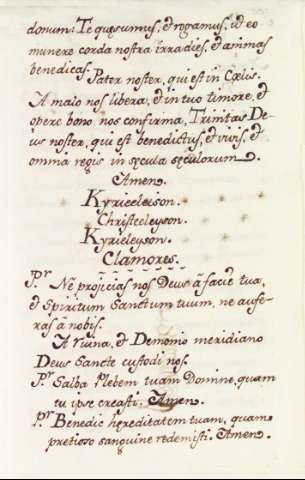 donum: Te quęsumus, et rogamus, ut eo
munere corda nostra irradies, et animas
benedicas.
Pater noster, qui est in Cœlis.
A malo nos libera, et in tuo timore, et
opere bono nos confirma, Trinitas De-
us noster, qui est benedictus, et vivis, et
omnia regis in sęcula sęculorum.
Amen.
Kyrieeleison.
Christeeleyson.
Kyrieleyson.
Clamores.
Pr Nẽ projicias nos Deus ã facie tua,
et Spiritum Sanctum tuum, ne aufe-
ras â nobis.
A ruina, et Demonio meridiano
Deus Sancte custodi nos.
Pr Salba Plebem tuam Domine, quam
tu ipse creasti. Amen.
Pr Benedic hereditatem tuam, quam
pretioso sanguine redemisti. Amen.